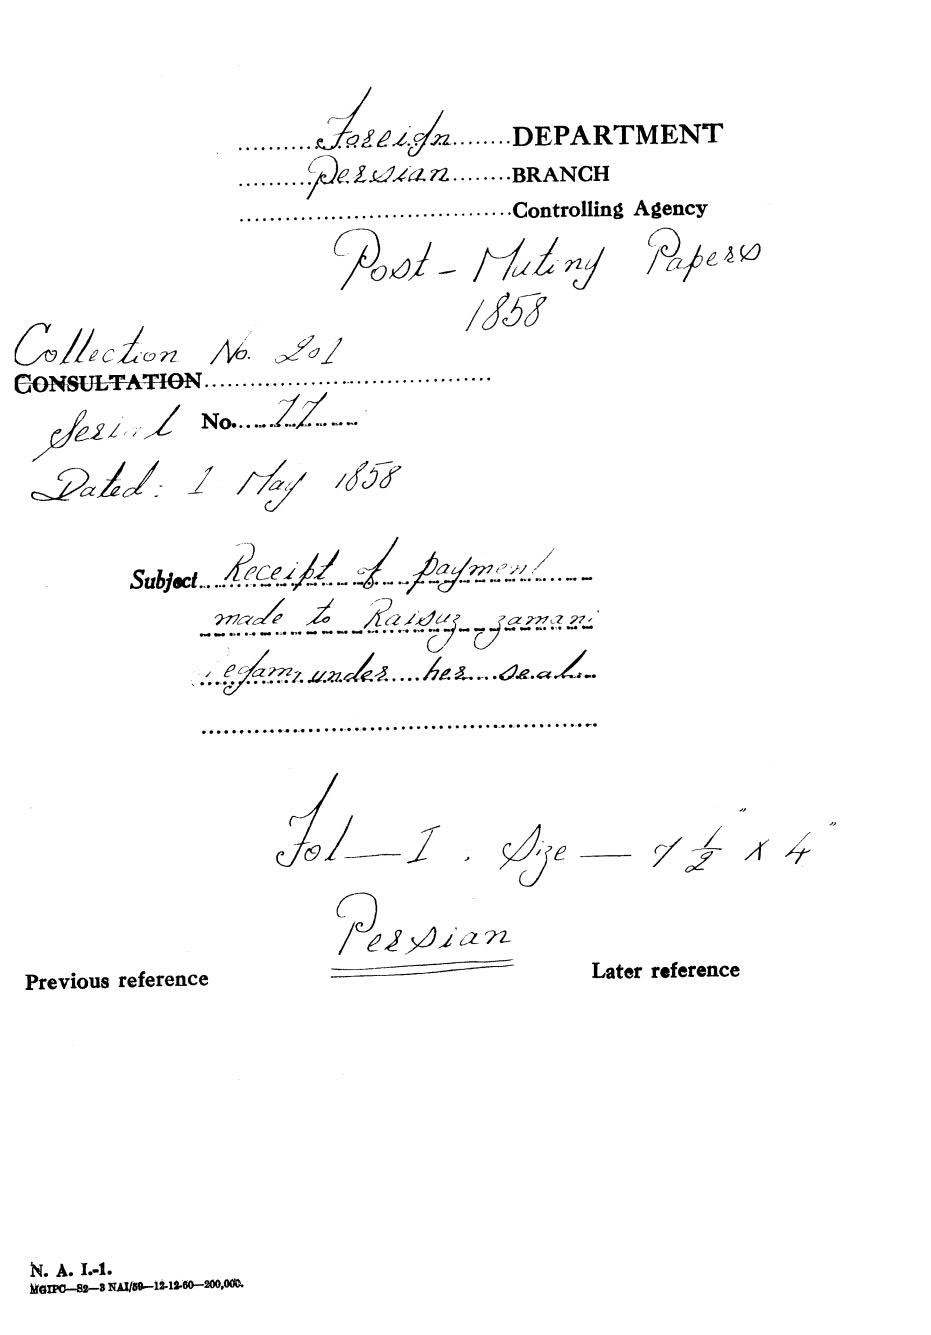 Foreign DEPARTMENT
Persian BRANCH
Controlling Agency
Post - Mutiny Papers
1858
Collection No. 201
CONSULTATION
Serial No. 77
Dated: 1 May 1858
Subject Receipt of payment
made to Raisuz zamani
egam under her seal
Fol — I . Size — 7 1/2" x 4"
Persian
Previous reference Later reference
N. A. I.-1.
MGIPC—S2—3 NAI/59—12-12-60—200,000.